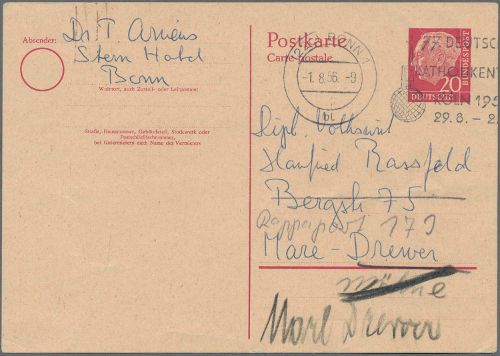 Absender:
Dr. T. Arriens
Stern Hotel
Bonn
Wohnort, auch Zustell- oder Leitpostamt
Straße, Hausnummer, Gebäudeteil, Stockwerk oder
Postschließfachnummer,
bei Untermietern auch Name des Vermieters
Postkarte
Carte postale
BONN 1
-1.8.56.-9
bl
77. DEUTSC
KATHOLIKENT
KÖLN 195
29.8. - 2.
20
DEUTSCHE
BUNDESPOST
Dipl. Volkswirt
Manfred Rassfeld
Bergstr. 75
179
Marl - Drewer
Marl Drewer